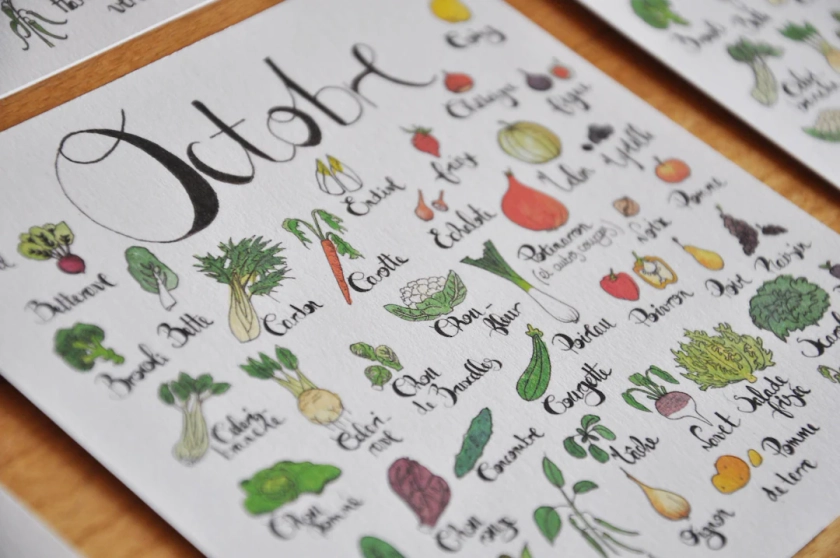 Octobre
Coing
Châtaigne
Figue
Endive
Echalote
Potimarron
(et autres courges)
Noix
Pomme
Betterave
Brocoli
Blette
Cardon
Carotte
Chou-
fleur
Poireau
Poivron
Poire
Raisin
Céleri-
branche
Céleri-
rave
Chou
de Bruxelles
Courgette
Concombre
Mâche
Navet
Salade
frisée
Chou
pommé
Chou
rouge
Oignon
Pomme
de terre
Céleri
branche